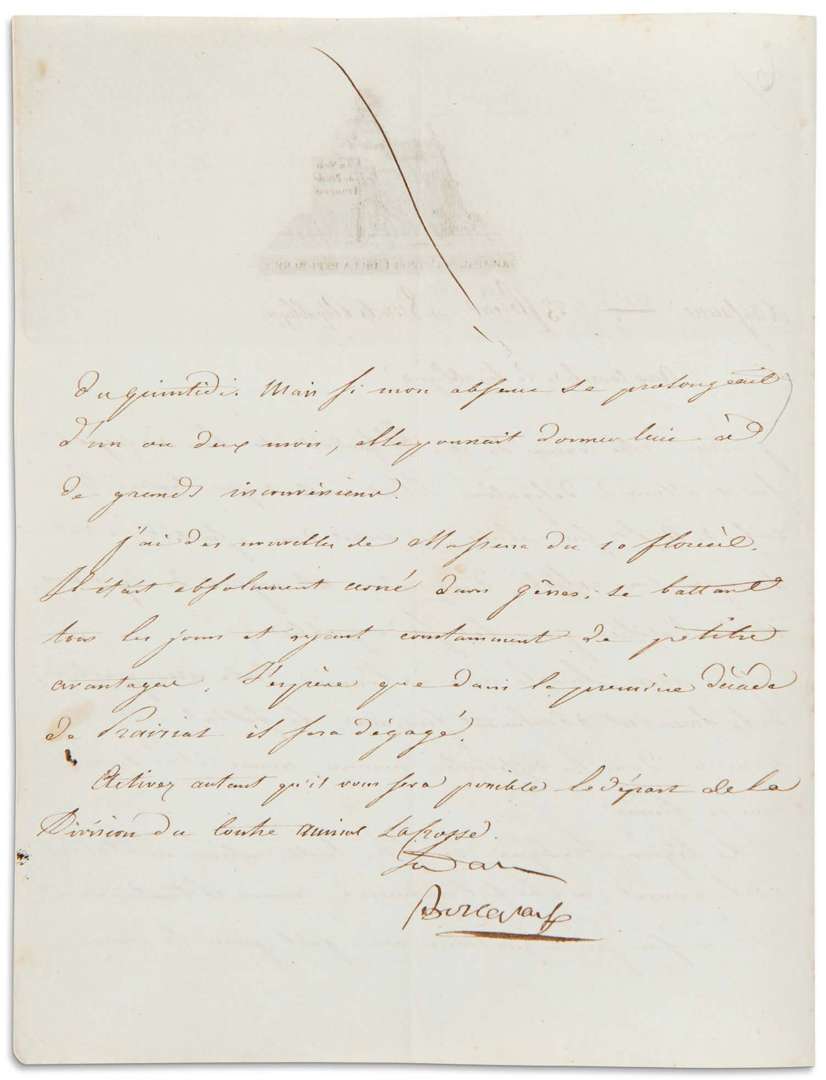 du quintidi. Mais si mon absence se prolongeait
d'un ou deux mois, elle pourrait donner lieu à
de grands inconvéniens.
j'ai des nouvelles de Massena du 10 floréal.
Il était absolument cerné dans gênes, se battant
tous les jours et ayant constamment de petites
avantages. J'espère que dans la première décade
de Prairial il sera dégagé.
Activez autant qu'il vous sera possible le départ de la
Division du Contre amiral LaCrosse.
Bonaparte